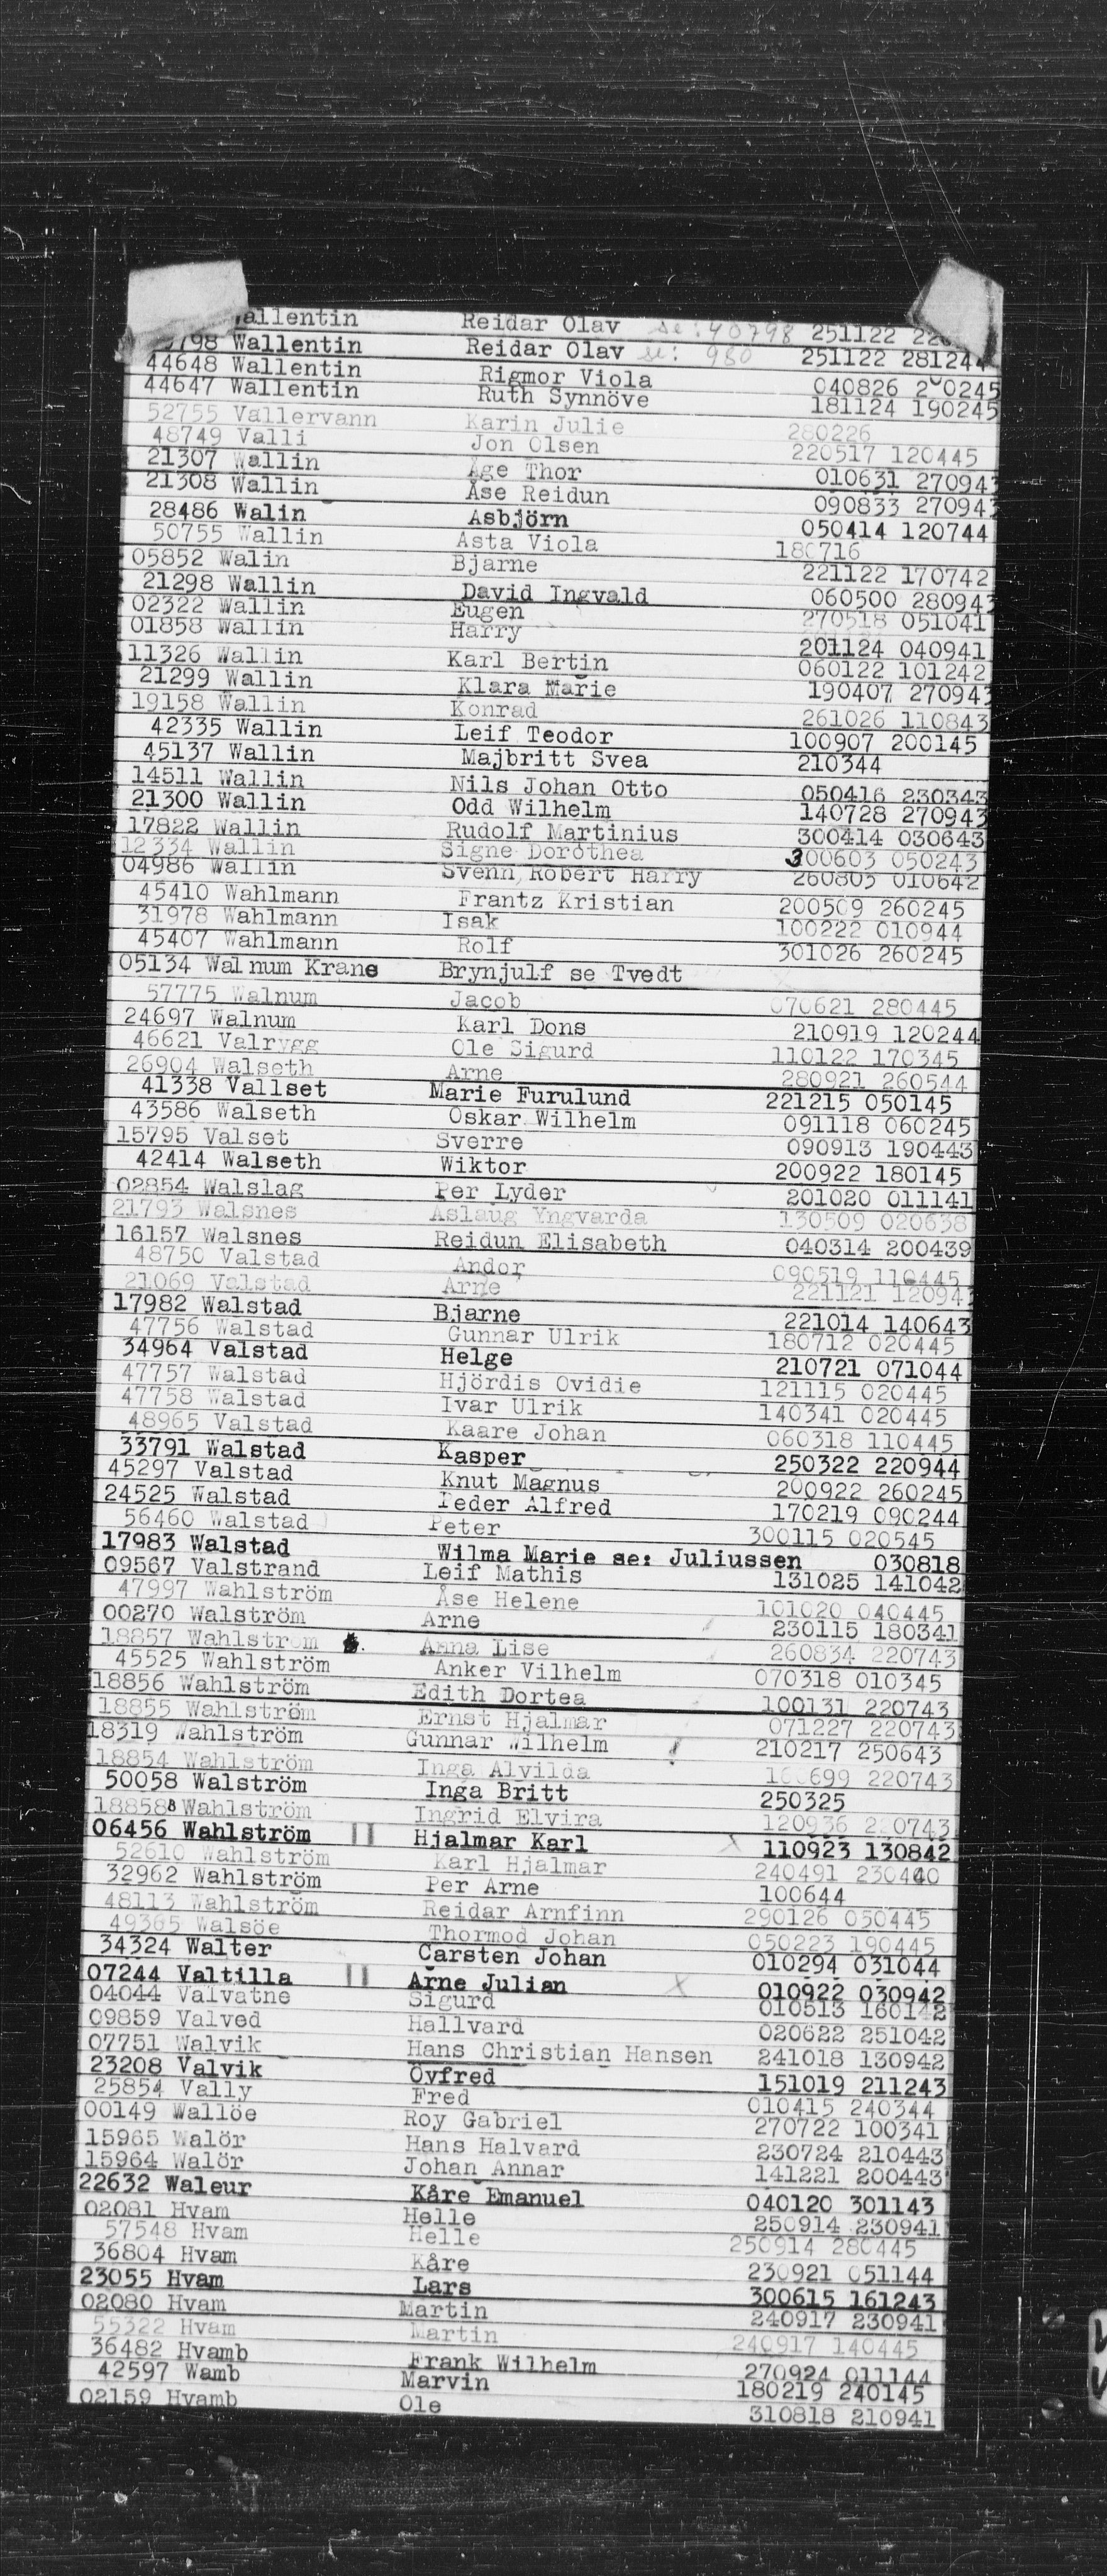 allentin Reidar Olav se: 40798 251122 22
798 Wallentin Reidar Olav se: 980 251122 281244
44648 Wallentin Rigmor Viola 040826 2 0245
44647 Wallentin Ruth Synnöve 181124 190245
52755 Vallervann Karin Julie 280226
48749 Valli Jon Olsen 220517 120445
21307 Wallin Åge Thor 010631 270943
21308 Wallin Åse Reidun 090833 270943
28486 Walin Asbjörn 050414 120744
50755 Wallin Asta Viola 180716
05852 Walin Bjarne 221122 170742
21298 Wallin David Ingvald 060500 280943
02322 Wallin Eugen 270518 051041
01858 Wallin Harry 201124 040941
11326 Wallin Karl Bertin 060122 101242
21299 Wallin Klara Marie 190407 270943
19158 Wallin Konrad 261026 110843
42335 Wallin Leif Teodor 100907 200145
45137 Wallin Majbritt Svea 210344
14511 Wallin Nils Johan Otto 050416 230343
21300 Wallin Odd Wilhelm 140728 270943
17822 Wallin Rudolf Martinius 300414 030643
12334 Wallin Signe Dorothea 300603 050243
04986 Wallin Svenn, Robert Harry 260805 010642
45410 Wahlmann Frantz Kristian 200509 260245
31978 Wahlmann Isak 100222 010944
45407 Wahlmann Rolf 301026 260245
05134 Walnum Krane Brynjulf se Tvedt
57775 Walnum Jacob 070621 280445
24697 Walnum Karl Dons 210919 120244
46621 Valrygg Ole Sigurd 110122 170345
26904 Walseth Arne 280921 260544
41338 Vallset Marie Furulund 221215 050145
43586 Walseth Oskar Wilhelm 091118 060245
15795 Valset Sverre 090913 190443
42414 Walseth Wiktor 200922 180145
02854 Walslag Per Lyder 201020 011141
21793 Walsnes Aslaug Yngvarda 130509 020638
16157 Walsnes Reidun Elisabeth 040314 200439
48750 Valstad Andor 090519 110445
21069 Valstad Arne 221121 120943
17982 Walstad Bjarne 221014 140643
47756 Walstad Gunnar Ulrik 180712 020445
34964 Valstad Helge 210721 071044
47757 Walstad Hjördis Ovidie 121115 020445
47758 Walstad Ivar Ulrik 140341 020445
48965 Valstad Kaare Johan 060318 110445
33791 Walstad Kasper 250322 220944
45297 Valstad Knut Magnus 200922 260245
24525 Walstad Peder Alfred 170219 090244
56460 Walstad Peter 300115 020545
17983 Walstad Wilma Marie se: Juliussen 030818
09567 Valstrand Leif Mathis 131025 141042
47997 Wahlström Åse Helene 101020 040445
00270 Walström Arne 230115 180341
18857 Wahlstrom Anna Lise 260834 220743
45525 Wahlström Anker Vilhelm 070318 010345
18856 Wahlström Edith Dortea 100131 220743
18855 Wahlström Ernst Hjalmar 071227 220743
18319 Wahlström Gunnar Wilhelm 210217 250643
18854 Wahlström Inga Alvilda 699 220743
50058 Walström Inga Britt 250325
18858 Wahlström Ingrid Elvira 120936 220743
06456 Wahlström || Hjalmar Karl x 110923 130842
52610 Wahlström Karl Hjalmar 240491 230440
32962 Wahlström Per Arne 100644
48113 Wahlström Reidar Arnfinn 290126 050445
49365 Walsöe Thormod Johan 050223 190445
34324 Walter Carsten Johan 010294 031044
07244 Valtilla || Arne Julian x 010922 030942
04044 Valvatne Sigurd 010513 160142
09859 Valved Hallvard 020622 251042
07751 Walvik Hans Christian Hansen 241018 130942
23208 Valvik Ovfred 151019 211243
25854 Vally Fred 010415 240344
00149 Wallöe Roy Gabriel 270722 100341
15965 Walör Hans Halvard 230724 210443
15964 Walör Johan Annar 141221 200443
22632 Waleur Kåre Emanuel 040120 301143
02081 Hvam Helle 250914 230941
57548 Hvam Helle 250914 280445
36804 Hvam Kåre 230921 051144
23055 Hvam Lars 300615 161243
02080 Hvam Martin 240917 230941
55322 Hvam Martin 240917 140445
36482 Hvamb Frank Wilhelm 270924 011144
42597 Wamb Marvin 180219 240145
02159 Hvamb Ole 310818 210941